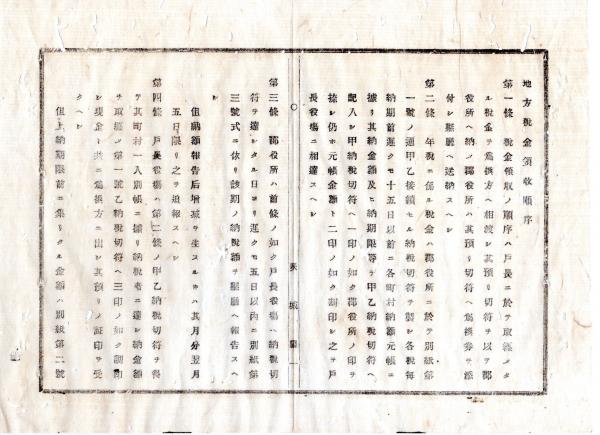 地方税金領収順序
第一條 税金領取ノ順序ハ戸長ニ於テ取纒メタ
ル税金ヲ爲換方ヘ相渡シ其預リ切符ヲ以テ郡
役所ヘ納メ郡役所ハ其預リ切符ヘ爲換券ヲ添
付シ縣廳ヘ送納スヘシ
第二條 年税ニ係ル税金ハ郡役所ニ於テ別紙第
一號ノ通甲乙接續セル納税切符ヲ製シ各税毎
納期前遲クモ十五日以前ニ各町村納額元帳ニ
據リ其納金額及ヒ納期限等ヲ甲乙納税切符ヘ
記入シ甲納税切符ヘ一印ノ如ク郡役所ノ印ヲ
捺シ仍ホ元帳金額ト二印ノ如ク割印シ之ヲ戸
長役塲ニ相達スヘシ
茨城縣
第三條 郡役所ハ前條ノ如ク戸長役塲ヘ納税切
符ヲ達シタル日ヨリ遲クモ五日以内ニ別紙第
三號式ニ依リ該期ノ納税額ヲ縣廳ヘ報告スヘ
シ
但納額報告后增减ヲ生スルモハ其月分翌月
五日限リ之ヲ追報スヘシ
第四條 戸長役塲ハ第二條ノ甲乙納税切符ヲ得
ヲ其町村一人別帳ニ據リ納税者ニ達シ納金額
ヲ取纒メ第一號乙納税切符ヘ三印ノ如ク調印
シ現金ト共ニ爲換方ニ出シ其預リノ証印ヲ受
クヘシ
但上納期限前ニ集リタル金額ハ別紙第二號